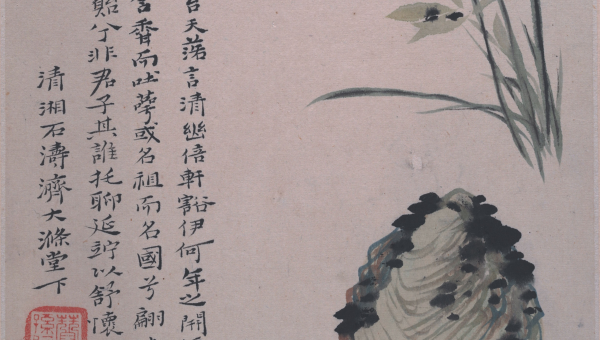 台天蒞言清幽倍軒豁伊何年之開
言香而吐萼或名祖而名國兮翩
貽兮非君子其誰托聊延竚以舒懷
清湘石濤濟大滌堂下